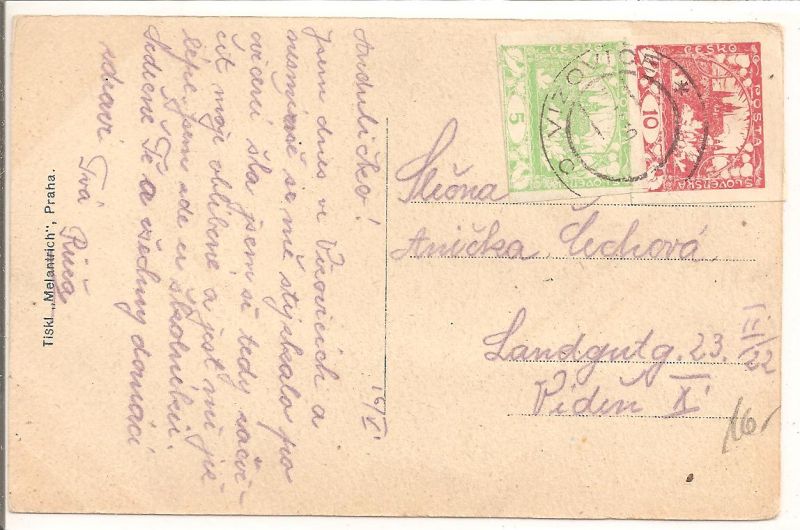 Anduličko!
Jsem dnes ve Vizovicích a
nesmírně se mě stýskalo po
cvičení šla jsem si tedy zacvi-
čit moje oblíbené a jest mi již
lépe. Jsem zde u školníků.
Srdečně Tě a všechny domácí
zdraví Tvá Růža
16/V.
Tiskl „Melantrich", Praha.
ČESKO
POŠTA
SLOVENSKÁ
5
ČESKO
POŠTA
SLOVENSKÁ
10
VIZOVICE
Slečna
Anička Čechová
Landgutg. 23. II/22
Vídeň X.
16